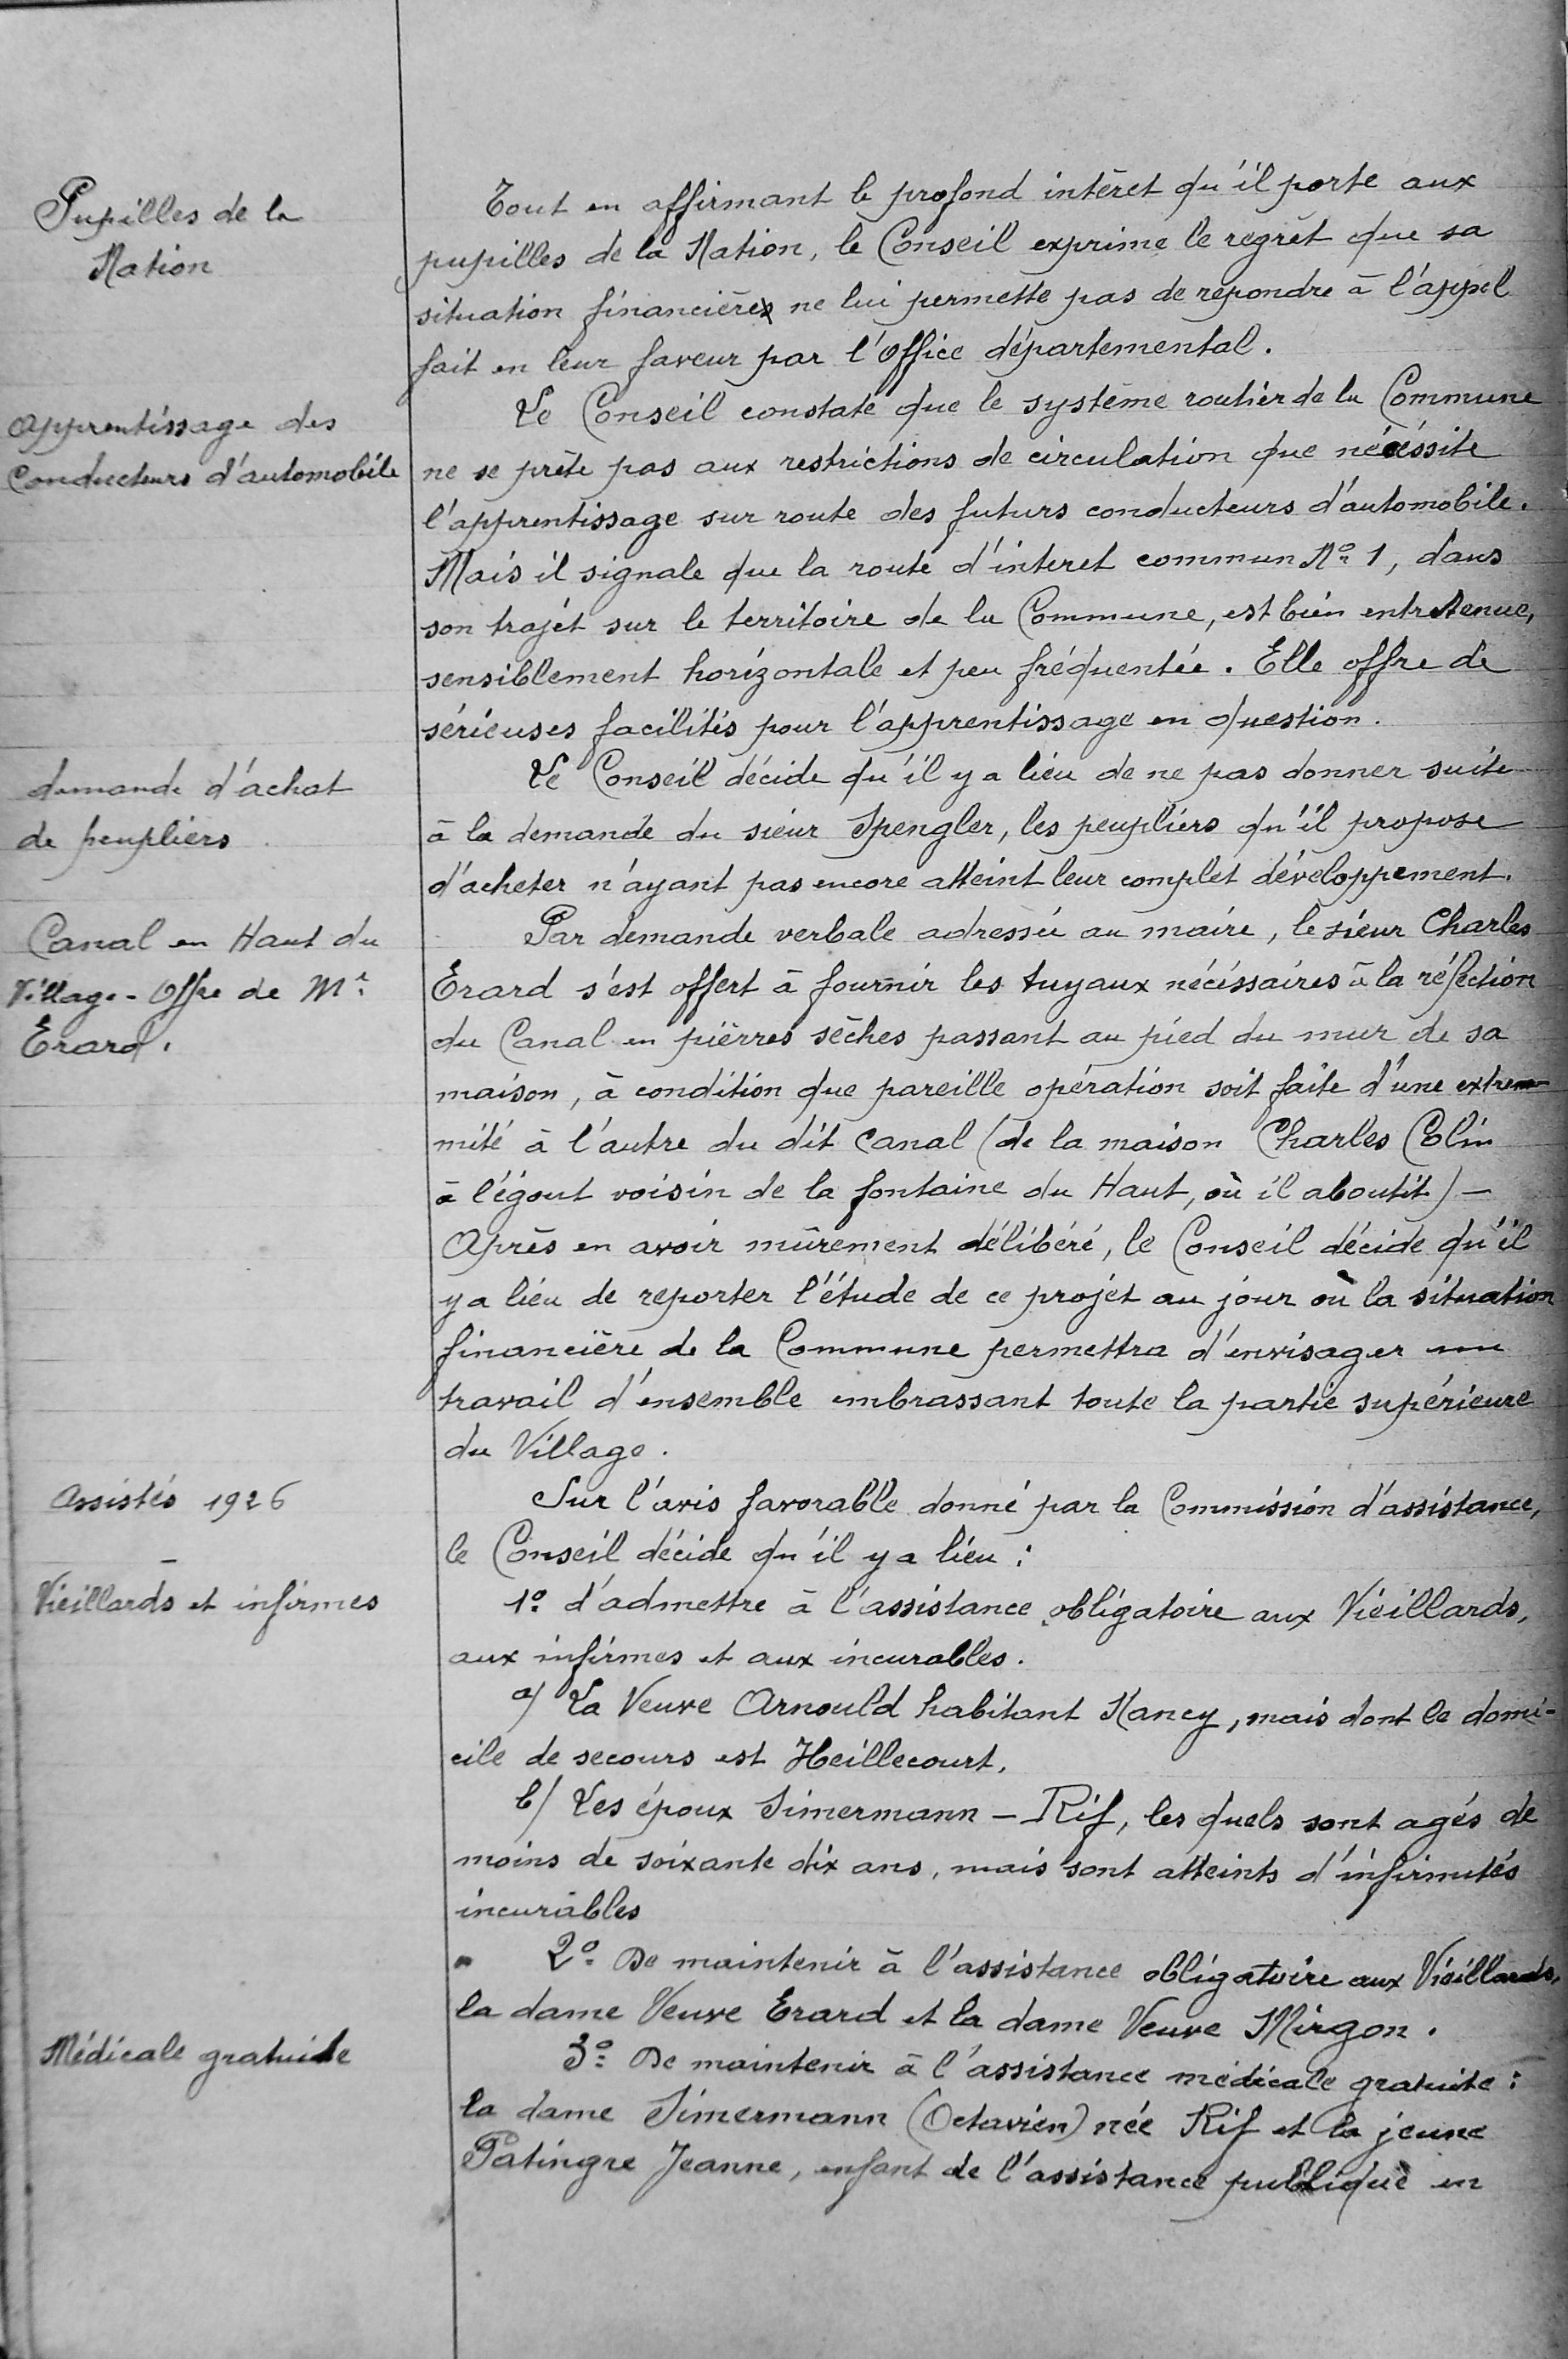 Pupilles de la
Nation
Tout en affirmant le profond intérêt qu'il porte aux
pupilles de la Nation, le Conseil exprime le regrêt que sa
situation financière ne lui permette pas de répondre à l'appel
fait en leur faveur par l'Office départemental.
Apprentissage des
Conducteurs d'automobile
Le Conseil constate que le système routier de la Commune
ne se prête pas aux restrictions de circulation que nécéssite
l'apprentissage sur route des futurs conducteurs d'automobile.
Mais il signale que la route d'interet commun No 1, dans
son trajet sur le territoire de la Commune, est bien entretenue,
sensiblement horizontale et peu fréquentée. Elle offre de
sérieuses facilités pour l'apprentissage en question.
demande d'achat
de peupliers
Le Conseil décide qu'il y a lieu de ne pas donner suite
à la demande du sieur Spengler, les peupliers qu'il propose
d'acheter n'ayant pas encore atteint leur complet développement.
Canal en Haut du
Village - Offre de Mr
Erard.
Par demande verbale adressée au maire, le sieur Charles
Erard s'est offert à fournir les tuyaux nécéssaires à la réfection
du Canal en pièrres sèches passant au pied du mur de sa
maison, à condition que pareille opération soit faite d'une extrem-
mité à l'autre du dit Canal (de la maison Charles Colin
à l'égout voisin de la fontaine du Haut, où il aboutit) -
Après en avoir mûrement délibéré, le Conseil décide qu'il
y a lieu de reporter l'étude de ce projet au jour où la situation
financière de la Commune permettra d'envisager un
travail d'ensemble embrassant toute la partie supérieure
du Village.
Assistés 1926
Sur l'avis favorable donné par la Commission d'assistance,
le Conseil décide qu'il y a lieu :
Vieillards et infirmes
1o d'admettre à l'assistance obligatoire aux Vieillards,
aux infirmes et aux incurables.
a) La Veuve Arnould habitant Nancy, mais dont le domi-
cile de secours est Heillecourt,
b) Les époux Simermann - Rif, les quels sont agés de
moins de soixante dix ans, mais sont atteints d'infirmités
incurables
2o De maintenir à l'assistance obligatoire aux Vieillards,
la dame Veuve Erard et la dame Veuve Mirgon.
Médicale gratuite
3o De maintenir à l'assistance médicale gratuite :
la dame Simermann (Octavien) née Rif et la jeune
Patingre Jeanne, enfant de l'assistance publique en